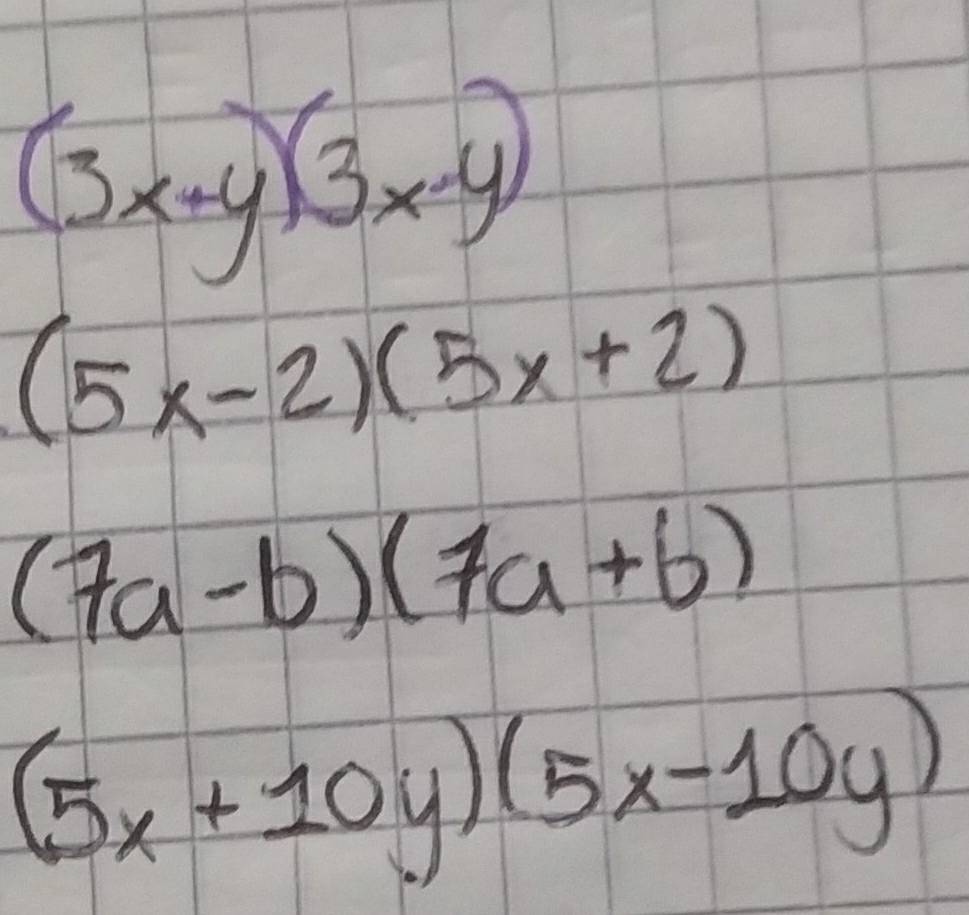 (3x+y)(3x-y)
(5x-2)(5x+2)
(7a-b)(7a+b)
(5x+10y)(5x-10y)